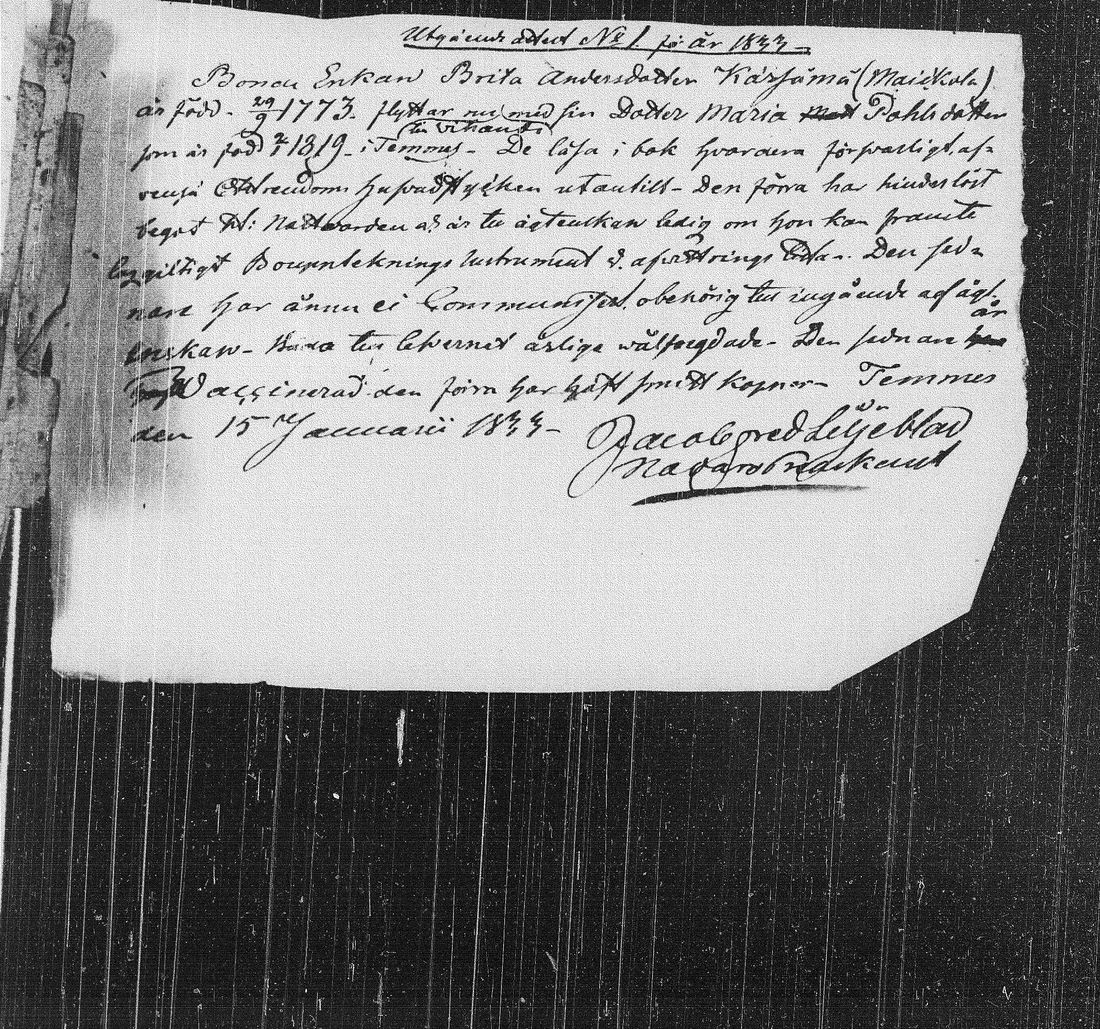 Utgående attest No 1. för år 1833
Bonde Enkan Brita Andersdotter Kärsämä (Maickola)
är född 29/9 1773. flyttar nu med sin Dotter Maria Pohls dotter
till
som är född 1819 i Temmes. De läsa i bok hvardera försvarligt, af-
Christendoms hufvudstycken utantill. Den förra har hinderlöst
begåt H: Nattvarden och är till ägtenskap ledig om hon kan framte
laggiltigt Bouppteknings Instrument Den sed-
nare har ännu ei Communicerat, obehörig till ingående af ägt-
är
enskap. till lefvernet ärliga välfregdade. Den sednare
Vaccinerad den förra har haft smittkoppor. Temmes
den 15 Januarii 1833
Jacob Fred Liljeblad